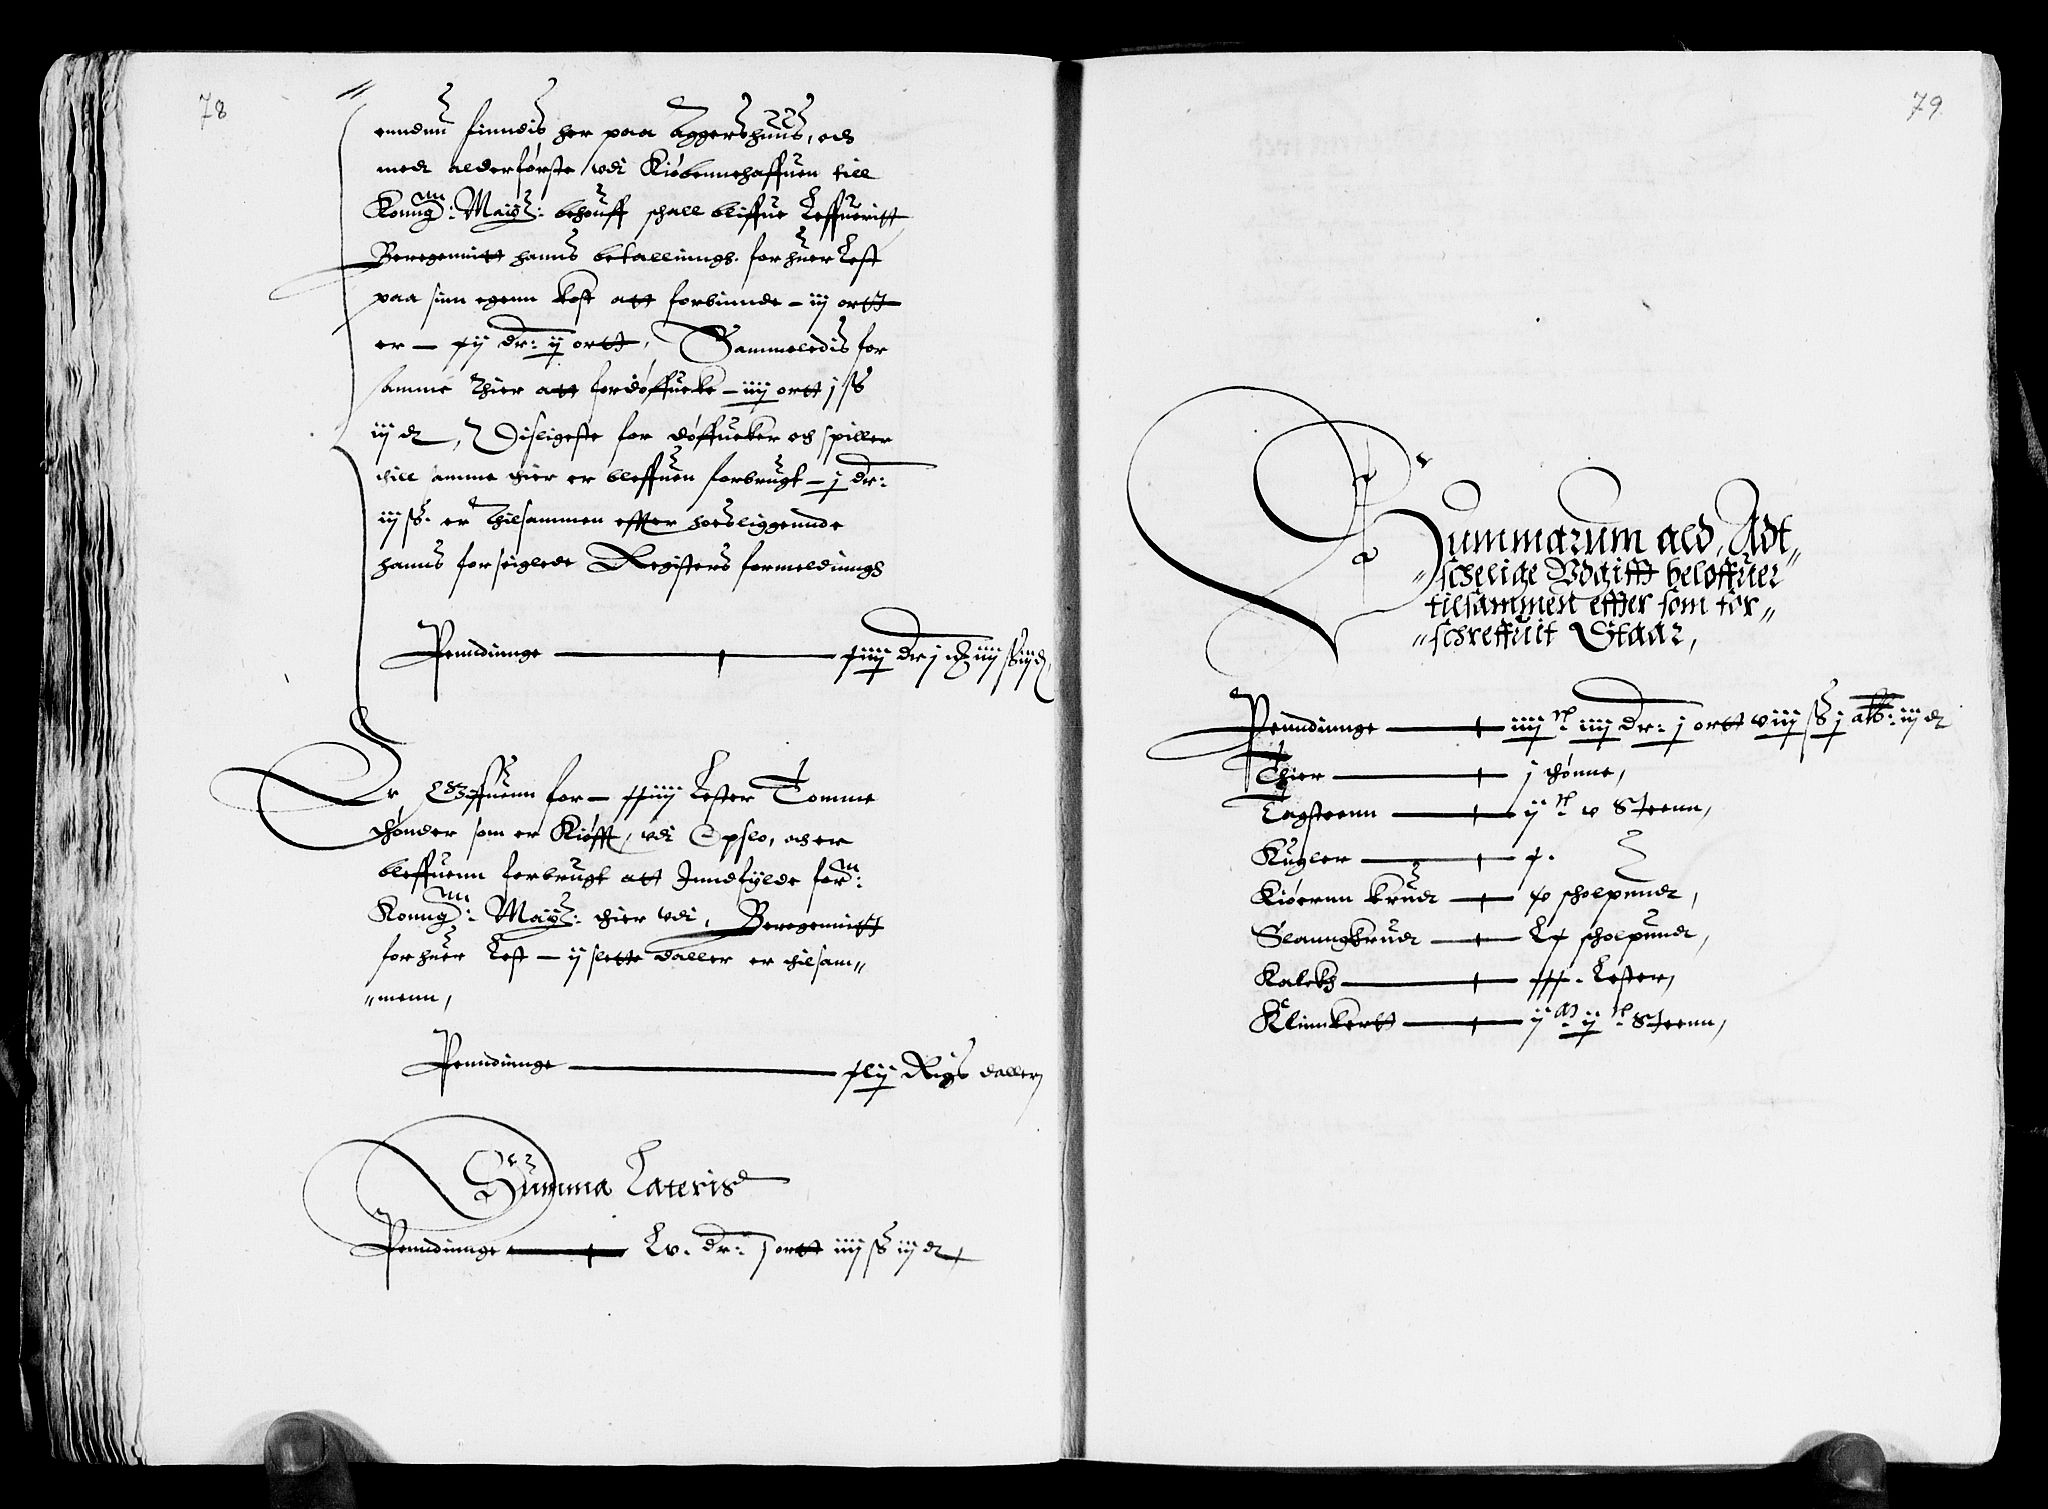 78
enndnu finndis her paa Aggershuus, och
medt alderførste vdi Kiøbennehaffuen till
Konng: Maijz: behouff schall bliffue Leffueritt
Beregennitt hanns betallinngh. for huer Lest
paa sinn egenn kost att forbinnde – iij ortt
er – xij dr: ij ortt, Sammeledis for
samme Thier att fordøffuecke – iiij ortt j ß
iij d, Disligeste for døffuecker och spiller
thill samme thier er bleffuen forbrugt – j dr:
iij ß. er Thilsammen effter hoesliggennde
hanns forseiglede Registers formeldinngh
Penndinnge — xiiij dr j ort iiij ß iij d,
Er Giffuenn for – xxiiij Lester Tomme
thønder som er Kiøfft, vdi Opslo, och er
bleffuenn forbrugt att Inndfylde for:
Konng: Maijz: thier vdi, Beregennitt
for huer Lest – ij slette daller er thilsam„
„menn,
Penndinnge — xlij Rigs daller
Summa Lateris
Penndinnge — Lv. dr: j ortt iiij ß iij d
79
Summarum ald, Adt„
„schelige Vdgifft beløffuer
tilsammen effter som for„
„schreffuit Staar,
Penndinnge — iiij c iiij dr: j ortt viij ß j alb: iij d
Thier — j thønne,
Tagsteenn — ij c v Steenn,
Kugler — x.
Kiøernn krudt — xv scholpundt,
Slanngkrudt — Lx scholpundt,
Kalckh — xxx. Lester,
Klinnkertt — ij m ij c Steenn,